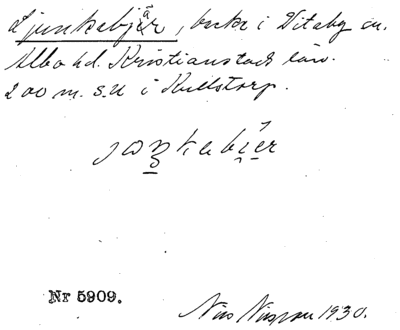 Ljunkabjär, backe i Vitaby sn.
Albo hd. Kristianstads län.
200 m. s.u i Kullstorp.
Nr 5909.
Nils Nilsson 1930.